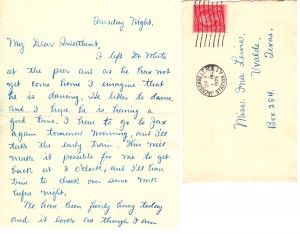 Tuesday Night.
My Dear Sweetheart,
I left Dr White
at the pier and as he has not
yet come home I imagine that
he is dancing. He likes to dance
and I hope he is having a
good time. I hope to go to Jax
again tomorrow morning, and I'll
take the early train. This will
make it possible for me to get
back at 3 o'clock, and I'll have
time to check over some work
before night.
We have been fairly busy today
and it looks as though I am
Miss Ira Lewis,
Uvalde,
Texas.
Box 284.